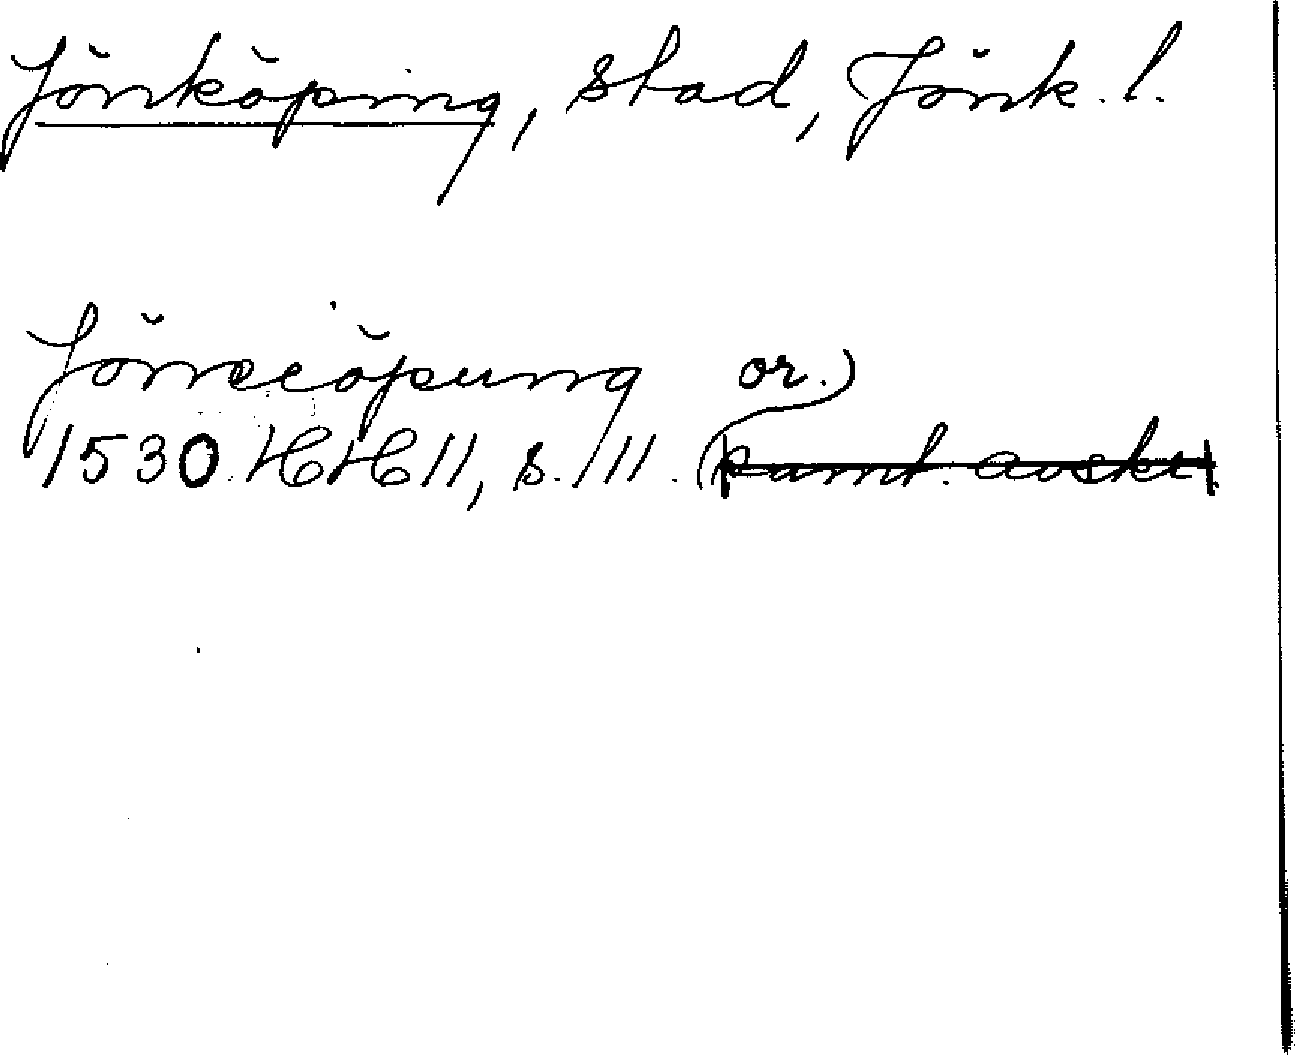 Jönköping, stad, Jönk. l.
Jönecöpung or.)
1530 HH 11, s. 111. (samt. avskr.